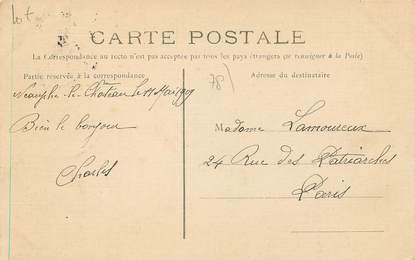 Lot
CARTE POSTALE
La Correspondance au recto n'est pas acceptée par tous les pays étrangers (se renseigner à la Poste)
Partie réservée à la correspondance
Adresse du destinataire
78
Neauphle-le-Château le 11 Mai 1909
Bien le bonjour
Charles
Madame Lamoureux
24 Rue des Patriarches
Paris